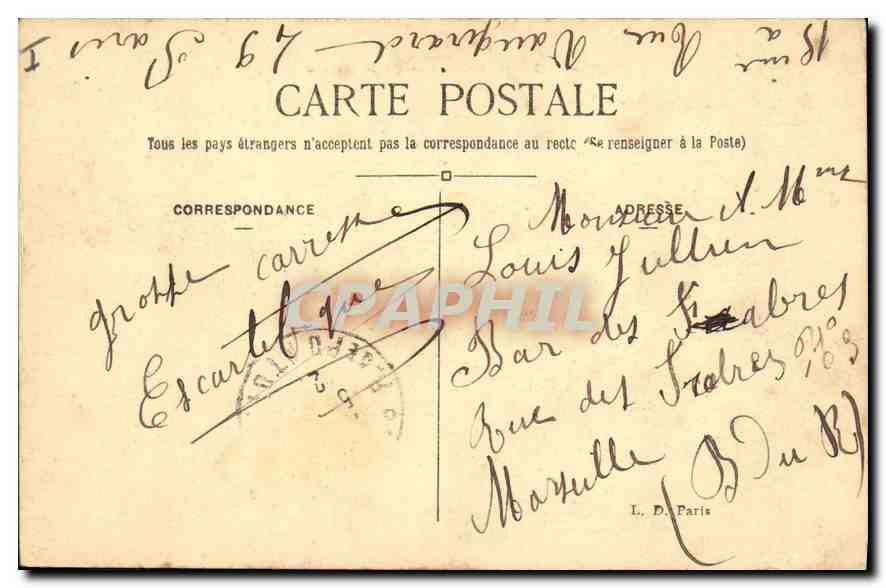 Rue Vaugirard 29 Paris
CARTE POSTALE
Tous les pays étrangers n'acceptent pas la correspondance au recto (Se renseigner à la Poste)
CORRESPONDANCE
grosse carresse
Escartefigue
ADRESSE
Monsieur & Mme
Louis Jullien
Bar des
Rue des
Marseille
(B du R)
L. D. Paris
CPAPHIL